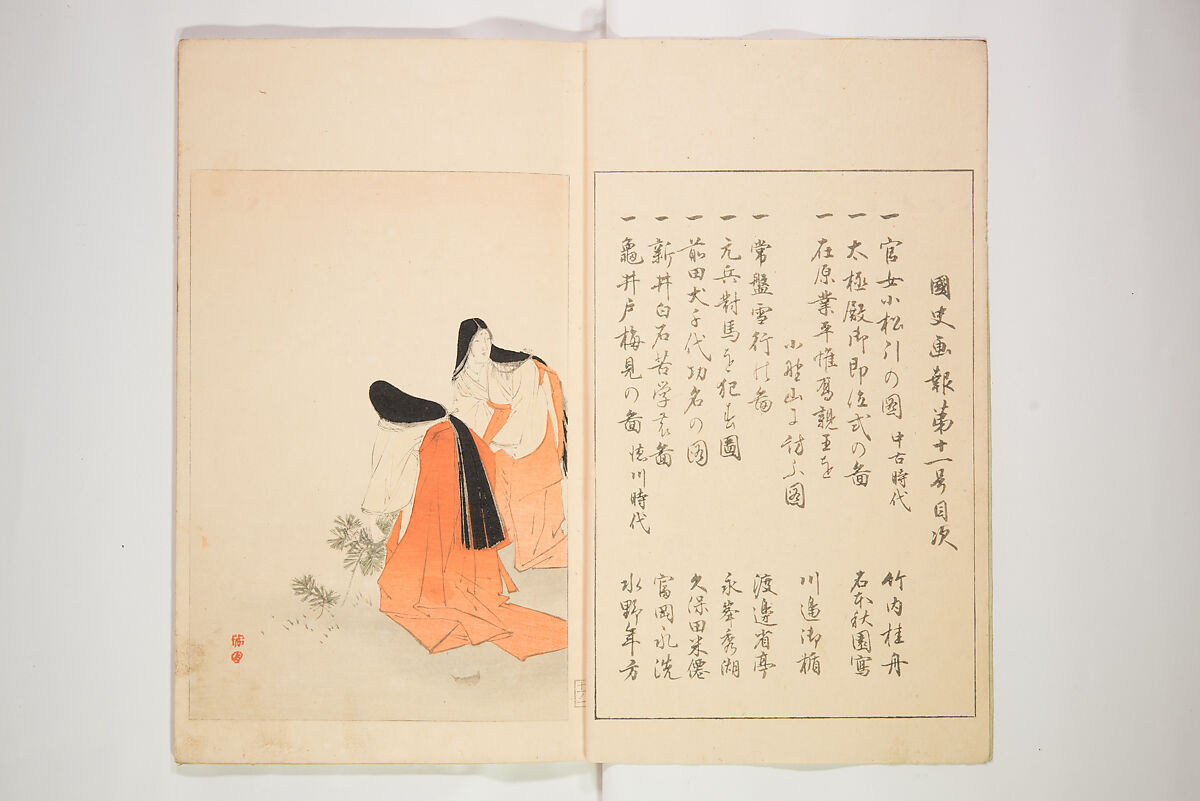 國史画報第十一号目次
一 官女小松引の圖 中古時代 竹内桂舟
一 太極殿御即位式の圖 右本秋園寫
一 在原業平惟喬親王を
小野山に訪ふ圖 川邉御楯
一 常盤雪行の圖 渡邊省亭
一 元兵對馬を犯す圖 永峯秀湖
一 前田犬千代功名の図 久保田米僊
一 新井白石苦学の圖 富岡永洗
一 龜井戸梅見の圖 徳川時代 水野年方